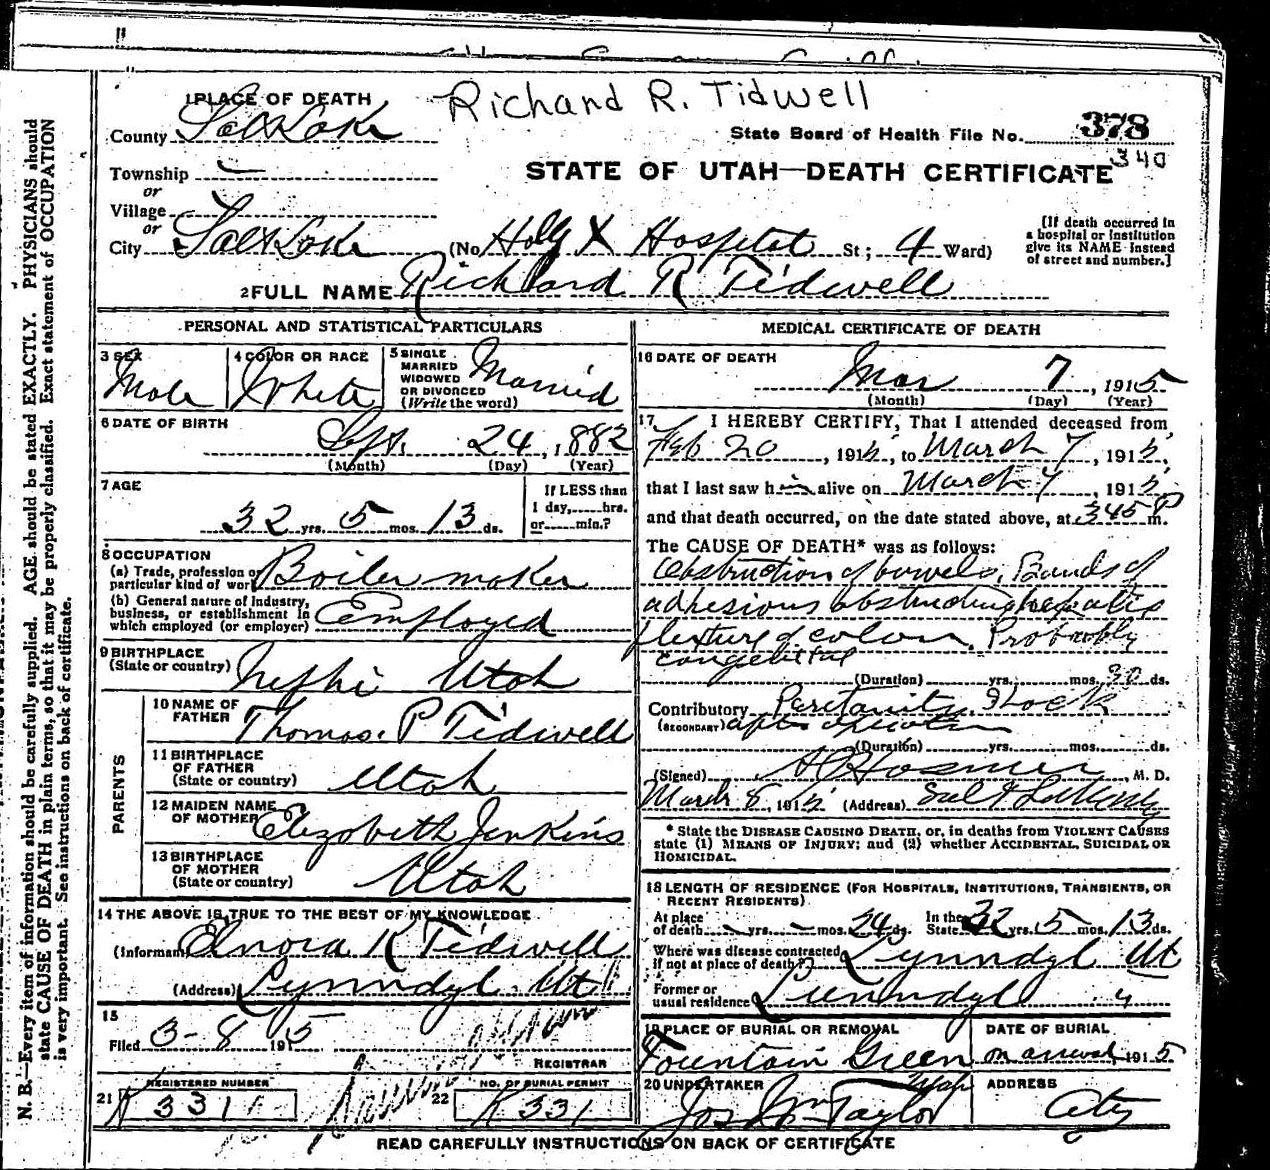 Richard R. Tidwell
1 PLACE OF DEATH
County Salt Lake
State Board of Health File No. 378
340
Township
or
Village
or
STATE OF UTAH—DEATH CERTIFICATE
City Salt Lake (No. Holy X Hospital St; 4 Ward)
[If death occurred in
a hospital or institution
give its NAME instead
of street and number.]
2 FULL NAME Richard R Tidwell
PERSONAL AND STATISTICAL PARTICULARS
3 SEX
Male
4 COLOR OR RACE
White
5 SINGLE
MARRIED
WIDOWED
OR DIVORCED
(Write the word)
Married
6 DATE OF BIRTH
Sept. 24, 1882
(Month) (Day) (Year)
7 AGE
32 yrs. 5 mos. 13 ds.
If LESS than
1 day, hrs.
or min.?
8 OCCUPATION
(a) Trade, profession or
particular kind of work Boiler maker
(b) General nature of industry,
business, or establishment in
which employed (or employer) Employed
9 BIRTHPLACE
(State or country) Nephi Utah
PARENTS
10 NAME OF
FATHER Thomas. P Tidwell
11 BIRTHPLACE
OF FATHER
(State or country) Utah
12 MAIDEN NAME
OF MOTHER Elizabeth Jenkins
13 BIRTHPLACE
OF MOTHER
(State or country) Utah
14 THE ABOVE IS TRUE TO THE BEST OF MY KNOWLEDGE
(Informant) Elnora K Tidwell
(Address) Lynndyl Ut
15
Filed 3-8 1915
REGISTRAR
21 REGISTERED NUMBER
K 331
22 NO. OF BURIAL PERMIT
K 331
MEDICAL CERTIFICATE OF DEATH
16 DATE OF DEATH
Mar 7, 1915
(Month) (Day) (Year)
17 I HEREBY CERTIFY, That I attended deceased from
Feb 20, 1915, to March 7, 1915,
that I last saw him alive on March 7, 1915,
and that death occurred, on the date stated above, at 345 P m.
The CAUSE OF DEATH* was as follows:
Obstruction of bowels, Bands of
adhesions obstructing hepatic
flexture of colon. Probably
congenital
(Duration) yrs. mos. 30 ds.
Contributory Peritonitis Shock
(SECONDARY) after operation
(Duration) yrs. mos. ds.
(Signed) Hosmer, M. D.
March 8, 1915 (Address) Salt Lake City
* State the DISEASE CAUSING DEATH, or, in deaths from VIOLENT CAUSES
state (1) MEANS OF INJURY; and (2) whether ACCIDENTAL, SUICIDAL OR
HOMICIDAL.
18 LENGTH OF RESIDENCE (FOR HOSPITALS, INSTITUTIONS, TRANSIENTS, OR
RECENT RESIDENTS).
At place
of death yrs. mos. 24 ds.
In the
State 32 yrs. 5 mos. 13 ds.
Where was disease contracted
If not at place of death? Lynndyl Ut
Former or
usual residence Lynndyl "
19 PLACE OF BURIAL OR REMOVAL
Fountain Green
Utah
DATE OF BURIAL
on arrival, 1915
20 UNDERTAKER
Jos Wm Taylor
ADDRESS
City
READ CAREFULLY INSTRUCTIONS ON BACK OF CERTIFICATE
N. B.—Every item of information should be carefully supplied. AGE should be stated EXACTLY. PHYSICIANS should
state CAUSE OF DEATH in plain terms, so that it may be properly classified. Exact statement of OCCUPATION
is very important. See instructions on back of certificate.